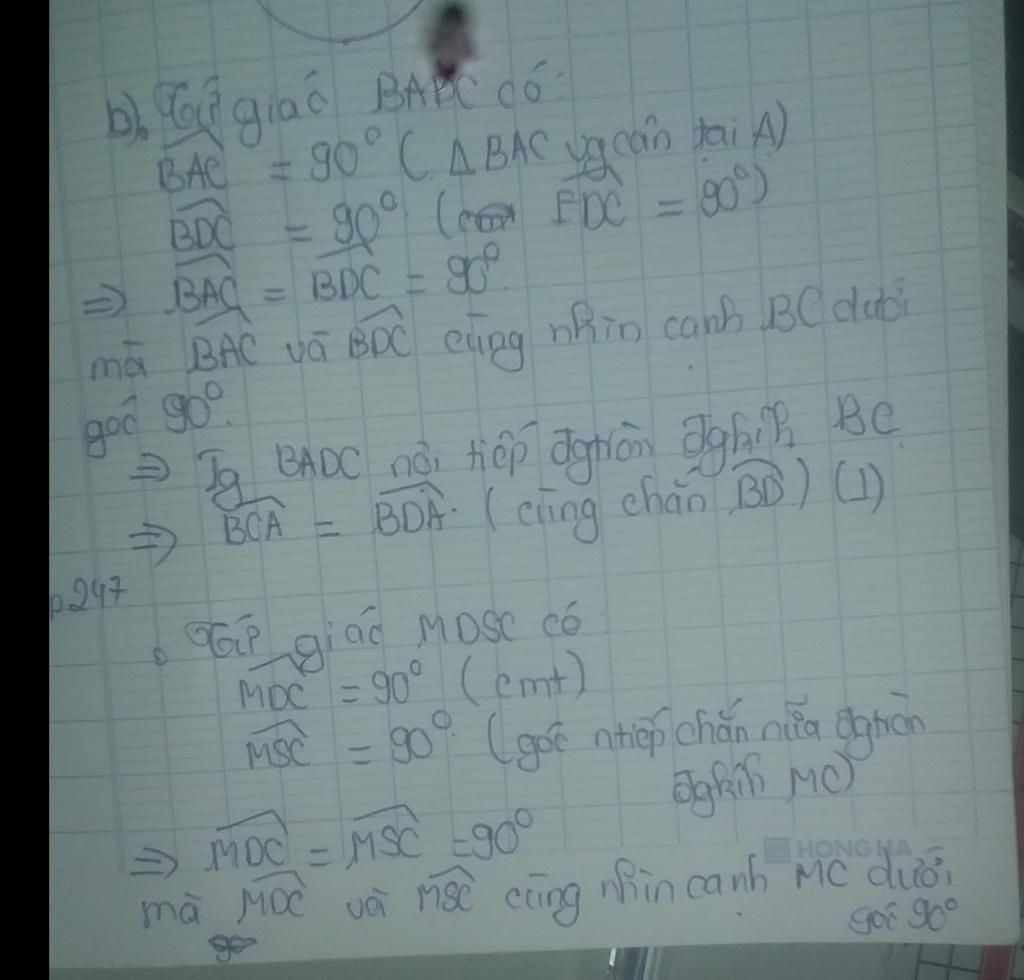 b). Tứ giác BADC có:
BAC = 90° (ΔBAC vg cân tại A)
BDC = 90° ( EDC = 90°)
=> BAC = BDC = 90°.
mà BAC và BDC cùng nhìn cạnh BC dưới
góc 90°.
=> Tg BADC nội tiếp đgtròn đgkính BC
=> BCA = BDA. (cùng chắn BD) (1)
p.247
Tứ giác MDSC có
MDC = 90° (cmt)
MSC = 90° (góc ntiếp chắn nửa đgtròn
đgkính MC)
=> MDC = MSC = 90°
HONGHA
mà MDC và MSC cùng nhìn cạnh MC dưới
góc 90°